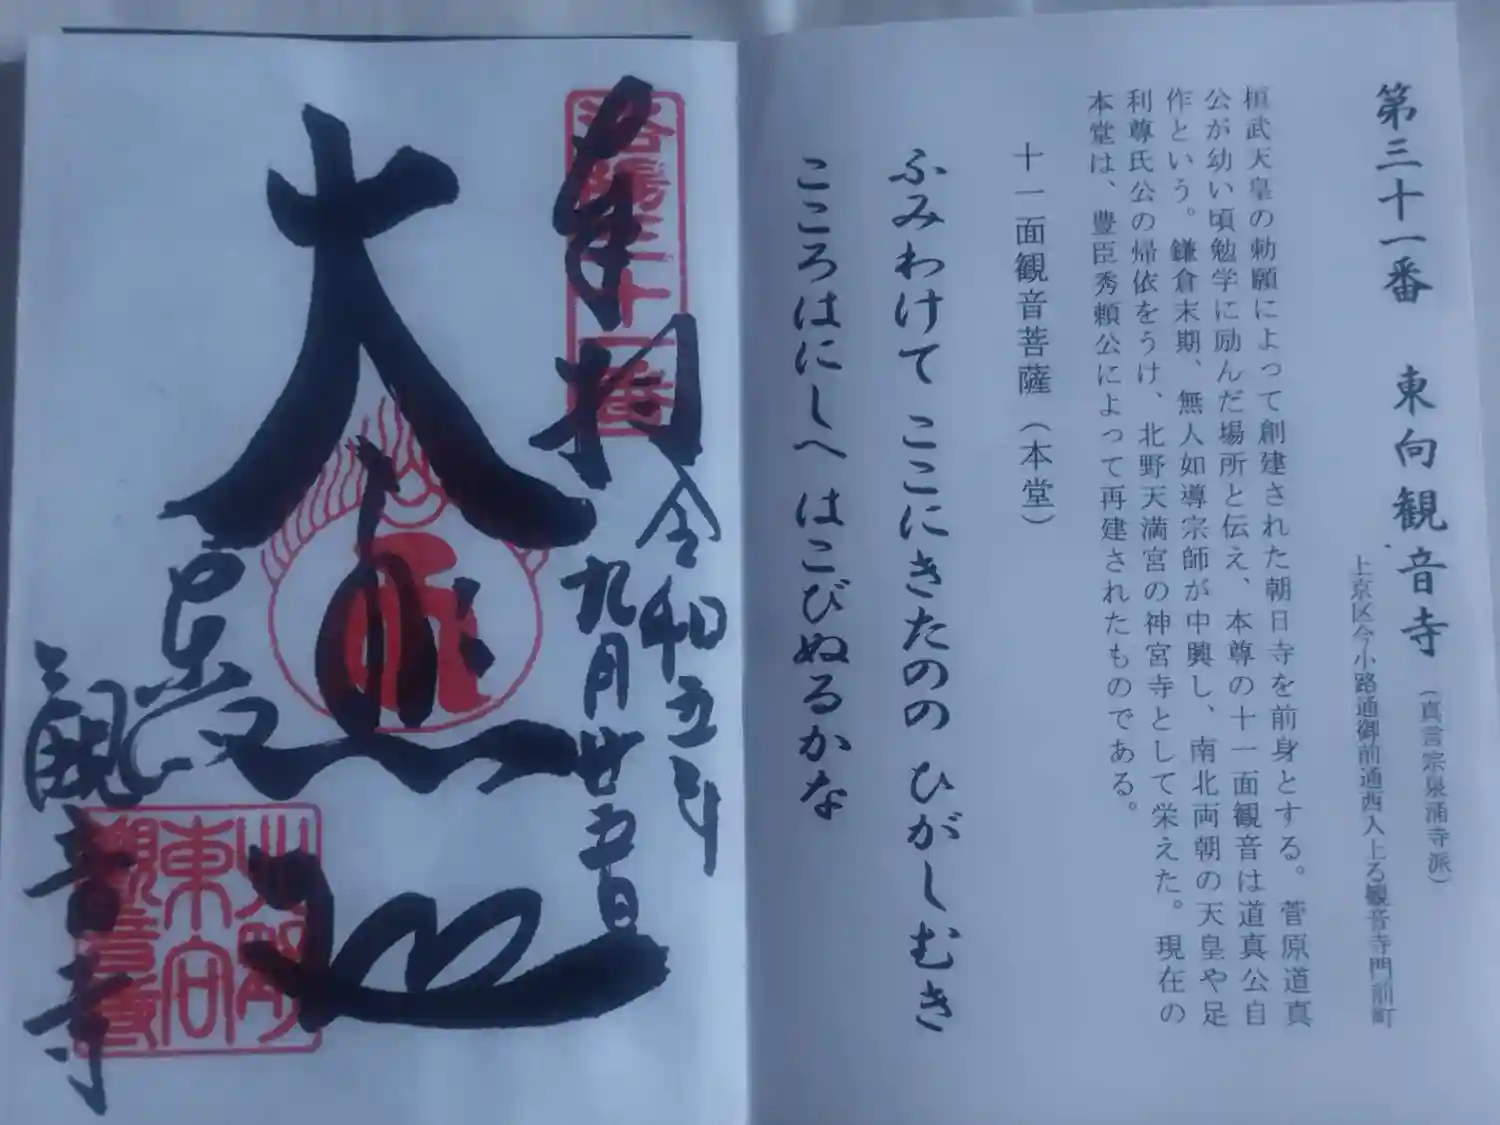 第三十一番 東向観音寺(真言宗泉涌寺派)
上京区今小路通御前通西入上る観音寺門前町
桓武天皇の勅願によって創建された朝日寺を前身とする。菅原道真
公が幼い頃勉学に励んだ場所と伝え、本尊の十一面観音は道真公自
作という。鎌倉末期、無人如導宗師が中興し、南北両朝の天皇や足
利尊氏公の帰依をうけ、北野天満宮の神宮寺として栄えた。現在の
本堂は、豊臣秀頼公によって再建されたものである。
十一面観音菩薩(本堂)
ふみわけて ここにきたのの ひがしむき
こころはにしへ はこびぬるかな
洛陽三十一番
奉拝
令和五年
九月廿五日
大悲
東向
観音寺
北野
東向
観音寺